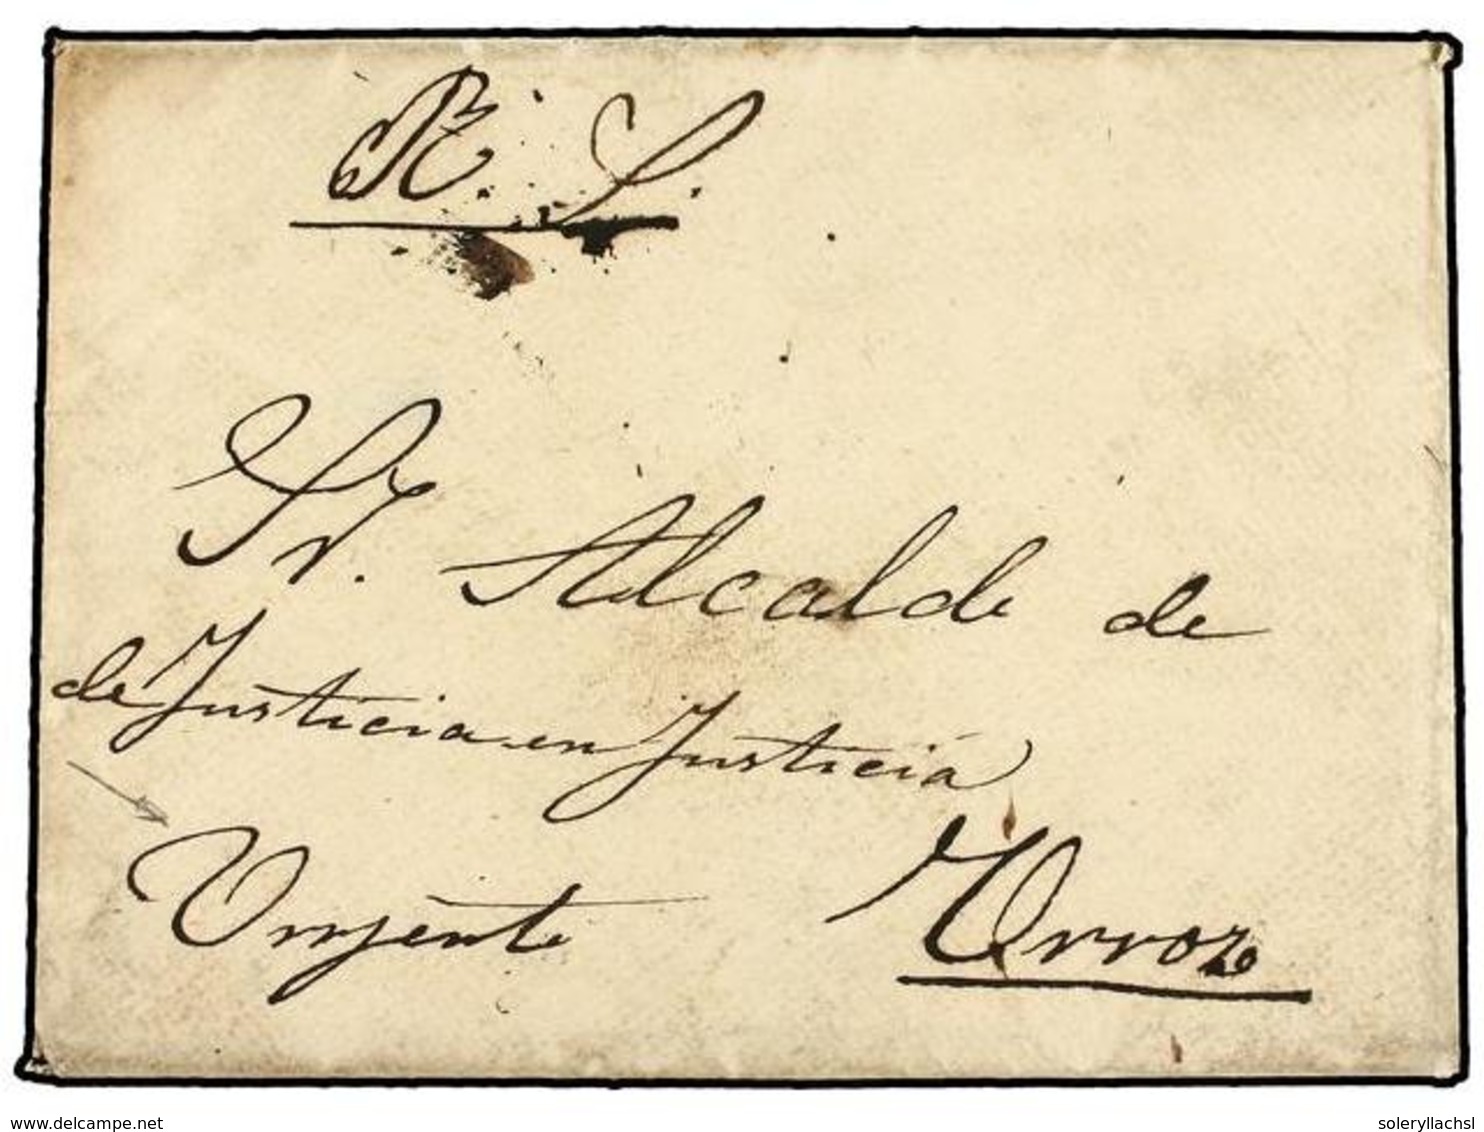 R. S.
Sr. Alcalde de
de Justicia en Justicia
Urgente
Urroz
www.delcampe.net
soleryllachsl